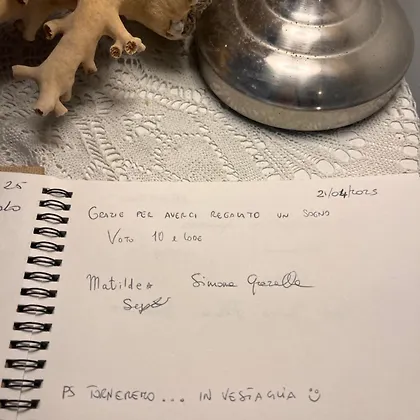 25
21/04/2025
GRAZIE PER AVERCI REGALATO UN SOGNO
VOTO 10 E LODE
Matilde Simona
PS TORNEREMO... IN VESTAGLIA